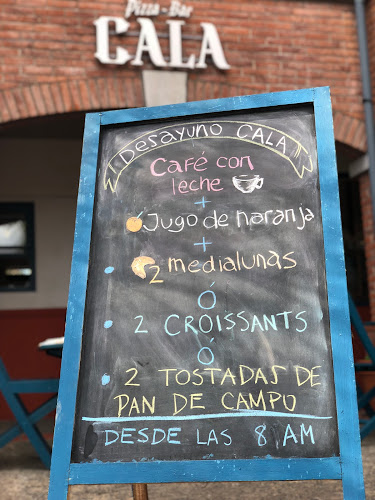 Pizza-Bar
CALA
Desayuno CALA
Café con
leche
+
Jugo de naranja
+
2 medialunas
Ó
2 CROISSANTS
Ó
2 TOSTADAS DE
PAN DE CAMPO
DESDE LAS 8 AM